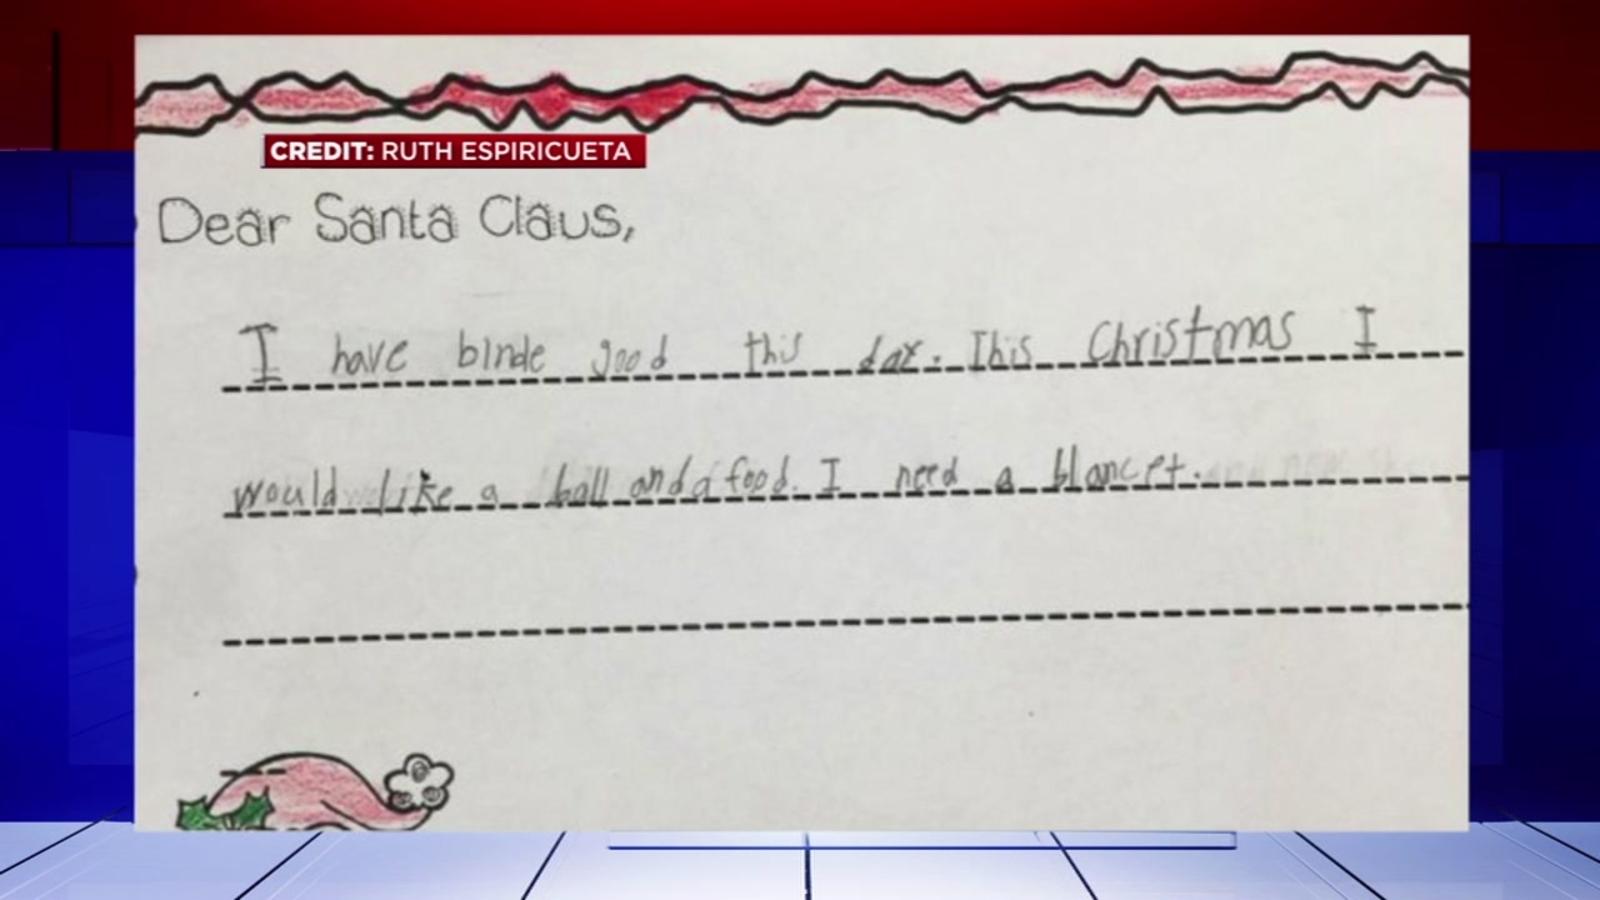 CREDIT: RUTH ESPIRICUETA
Dear Santa Claus,
I have binde good this day. This Christmas I
would like a ball and a food. I need a blancet.